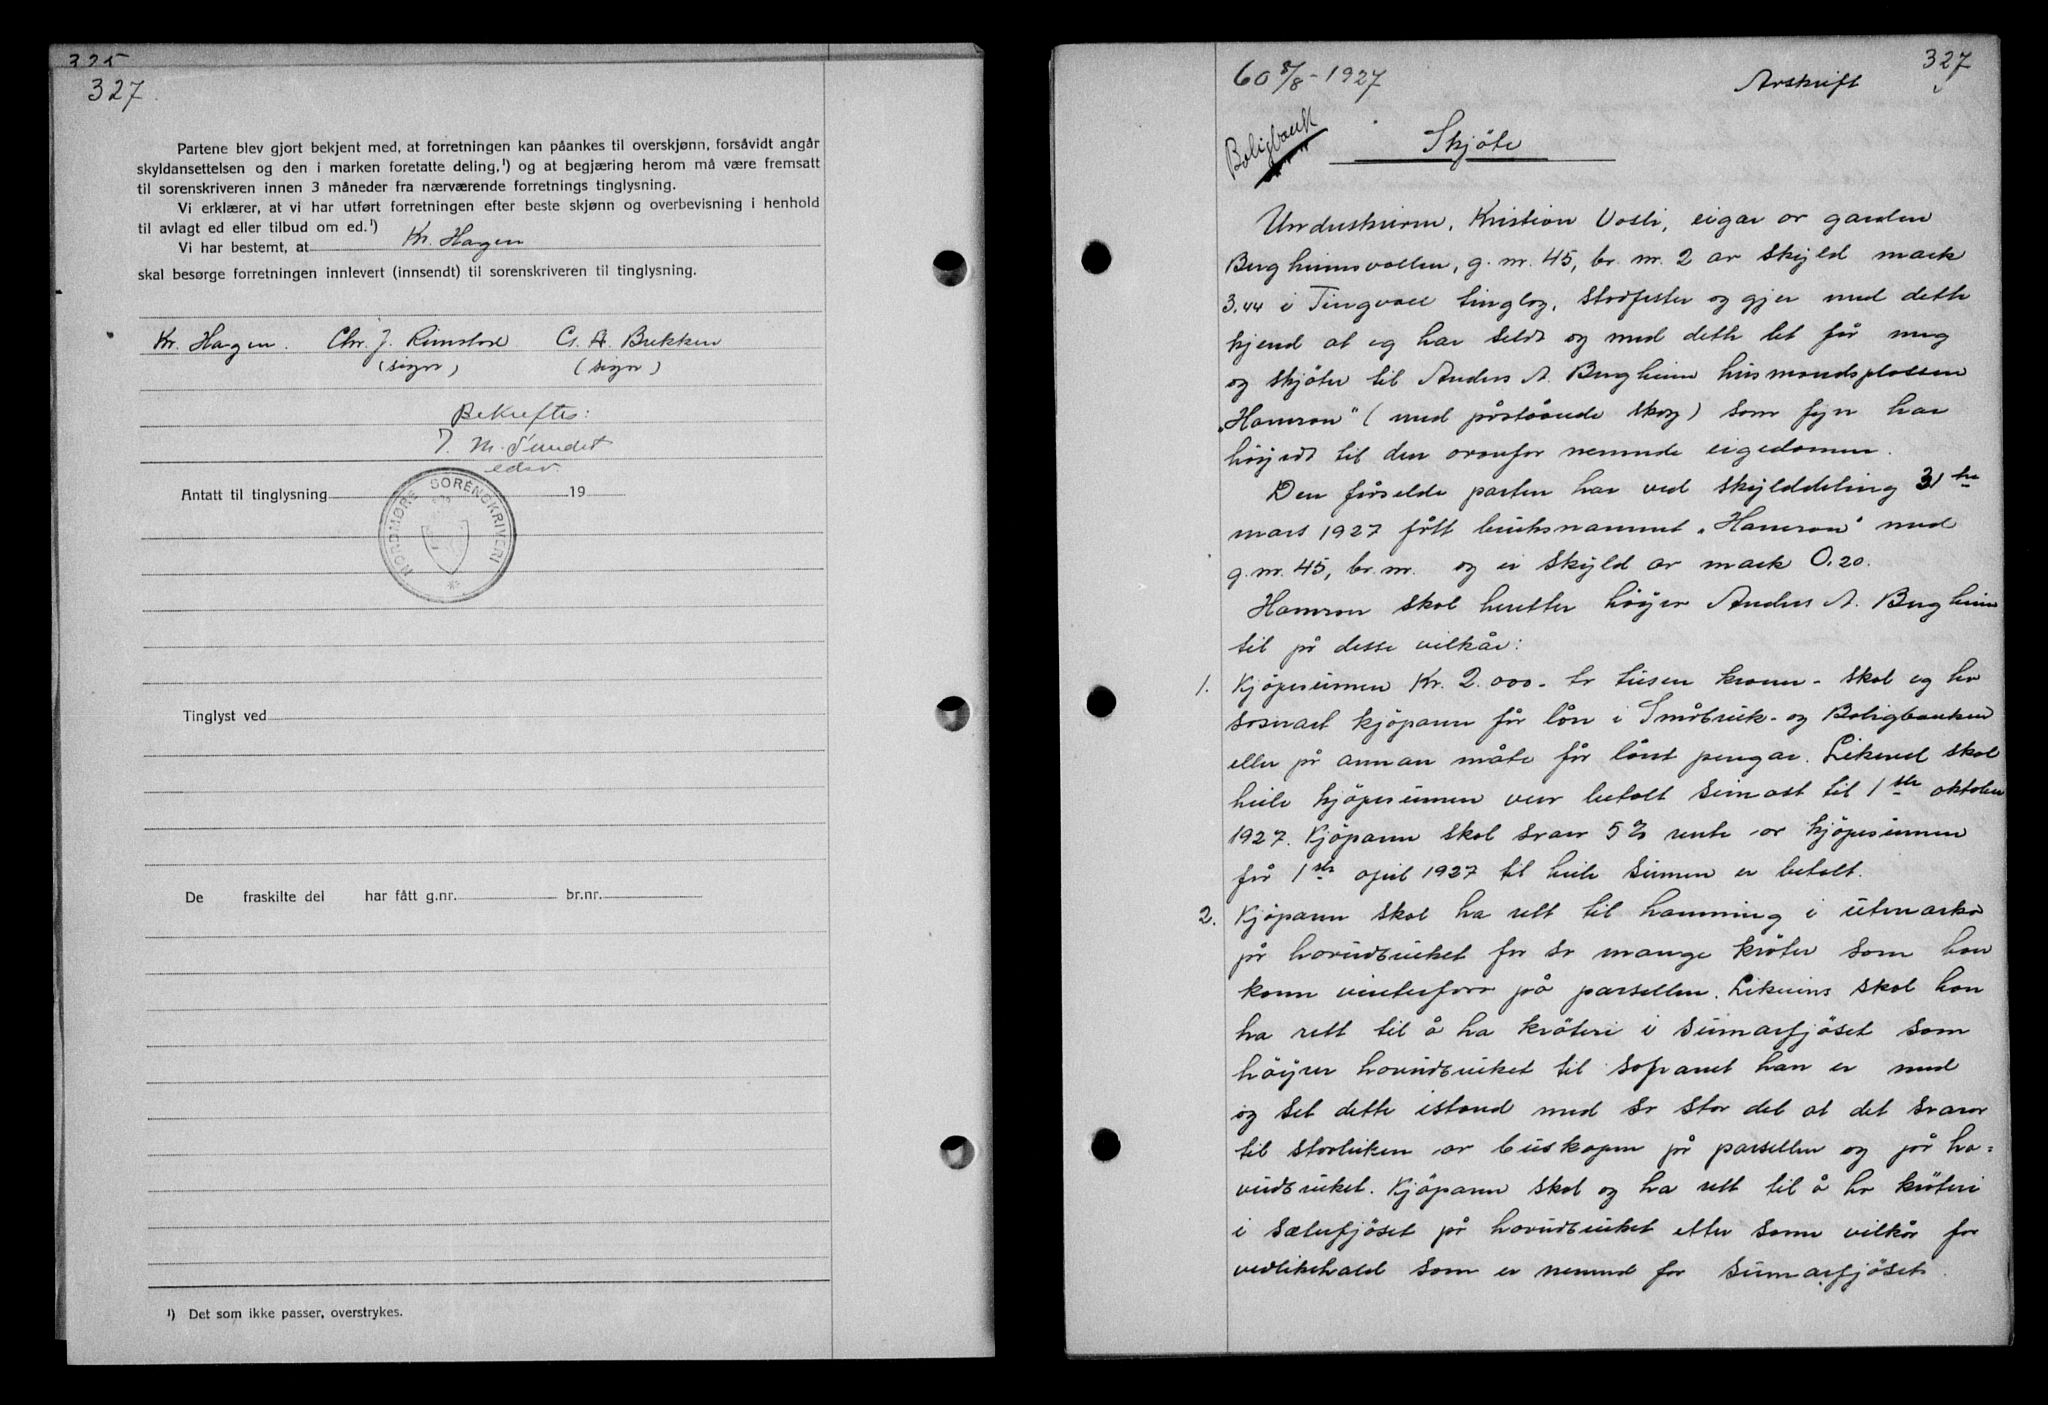 325
327.
Partene blev gjort bekjent med, at forretningen kan påankes til overskjønn, forsåvidt angår
skyldansettelsen og den i marken foretatte deling,¹) og at begjæring herom må være fremsatt
til sorenskriveren innen 3 måneder fra nærværende forretnings tinglysning.
Vi erklærer, at vi har utført forretningen efter beste skjønn og overbevisning i henhold
til avlagt ed eller tilbud om ed.¹)
Vi har bestemt, at Kr. Hagen
skal besørge forretningen innlevert (innsendt) til sorenskriveren til tinglysning.
Kr. Hagen. Chr. J. Rimstad G. A. Bakken
(sign) (sign)
Bekreftes:
J. M. Sundet
edsv.
Antatt til tinglysning 19
NORDMØRE SORENSKRIVERI
Tinglyst ved
De fraskilte del har fått g.nr. br.nr.
¹) Det som ikke passer, overstrykes.
327
60 8/8 - 1927 Avskrift
Boligbank
Skjöte
Underskrivne, Kristian Vasli, eigar av garden
Bergheimsvollen, g. nr. 45, br. nr. 2 av skyld mark
3.44 i Tingvoll tinglag, stadfester og gjer med dette
kjend at eg har seldt og med dette let frå meg
og skjöter til Anders A. Bergheim husmandsplassen
"Hamran" (med påståande skog) som fyrr har
höyrdt til den ovanfor nemnde eigedomen.
Den fråselde parten har ved skylddeling 31te
mars 1927 fått bruksnamnet "Hamran" med
g. nr. 45, br. nr. og ei skyld av mark 0.20.
Hamran skal heretter höyra Anders A. Bergheim
til på desse vilkår:
1. Kjöpesummen Kr. 2.000.- to tusen kroner - skal eg ha
sosnart kjöparen får lån i Småbruk- og Boligbanken
eller på annan måte får lånt pengar. Likevel skal
heile kjöpesummen vera betalt seinast til 1ste oktober
1927. Kjöparen skal svara 5% rente av kjöpesummen
frå 1ste april 1927 til heile summen er betalt.
2. Kjöparen skal ha rett til hamning i utmarka
på hovudbruket for so mange krøter som han
kann vinterfora på parsellen. Likeeins skal han
ha rett til å ha kröteri i sumarfjöset som
höyrer hovudbruket til soframt han er med
og set dette istand med so stor del at det svarar
til storleiken av buskapen på parsellen og på ho-
vudbruket. Kjöparen skal og ha rett til å ha kröteri
i sæterfjöset på hovudbruket etter same vilkår for
vedlikehald som er nemnd for sumarfjöset.